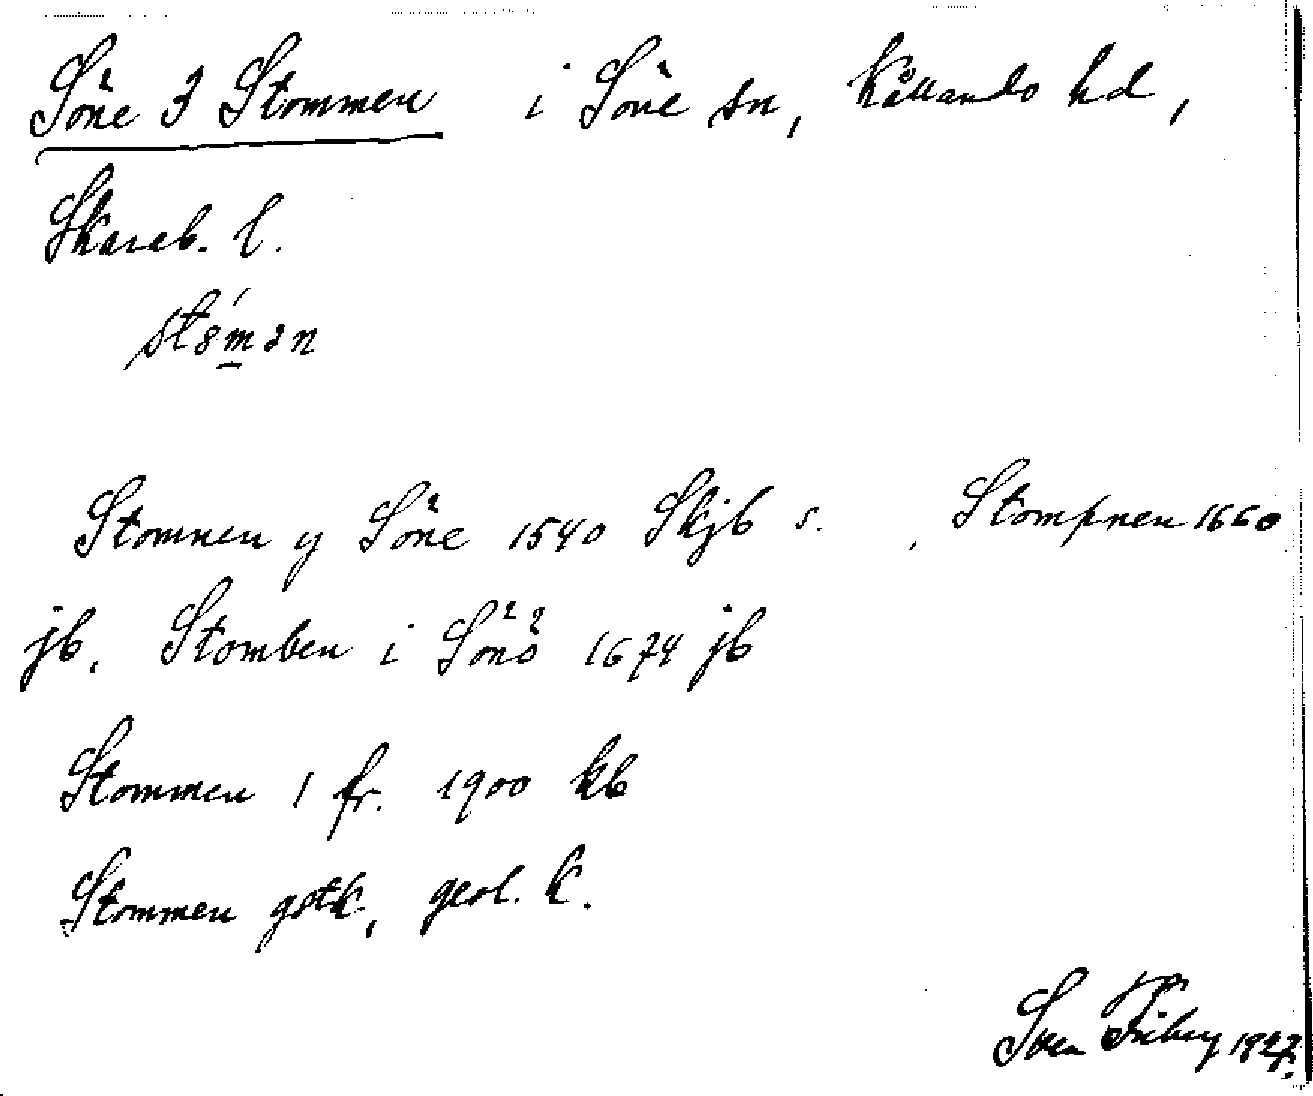 Söne 3 Stommen i Söne sn, Kållands hd,
Skarab. l.
Stomnen y Söne 1540 Skjb s. , Stompnen 1660
jb, Stomben i Sönö 1674 jb
Stommen 1 fr. 1900 kb
Stommen gstk, geol. k.
Sven Friberg 1927.